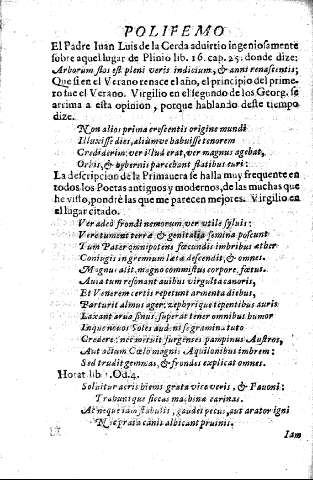 POLIFEMO
El Padre Iuan Luis de la Cerda aduirtio ingeniosamente
sobre aquel lugar de Plinio lib. 16. cap. 25. donde dize:
Arborum flos est pleni veris indicium, & anni renascentis;
Que si en el Verano renace el año, el principio del prime-
ro fue el Verano. Virgilio en el segundo de los Georg. se
arrima a esta opinion, porque hablando deste tiempo
dize.
Non alios prima crescentis origine mundi
Illuxisse dies, aliumve habuisse tenorem
Crediderim: ver illud erat, ver magnus agebat,
Orbis, & hybernis parcebant flatibus euri:
La descripcion de la Primauera se halla muy frequente en
todos los Poetas antiguos y modernos, de las muchas que
he visto, pondrè las que me parecen mejores. Virgilio en
el lugar citado.
Ver adeò frondi nemorum, ver vtile syluis:
Vere tument terræ & genitalia semina poscunt
Tum Pater omnipotens fœcundis imbribus æther
Coniugis in gremium læta descendit, & omnes
Magnus alit, magno commistus corpore, fœtus.
Auia tum resonant auibus virgulta canoris,
Et Venerem certis repetunt armenta diebus,
Parturit almus ager; zephyrique tepentibus auris
Laxant arua sinus, superat tener omnibus humor
Inque nouos Soles audent se gramina tuto
Credere; nec metuit surgenses pampinus Austros,
Aut actum Cœlo magnis Aquilonibus imbrem:
Sed trudit gemmas, & frondes explicat omnes.
Horat. lib. 1. Od. 4.
Soluitur acris hiems grata vice veris, & Fauoni:
Trahunt que siccas machinæ carinas.
At neque iam stabulis, gaudet pecus, aut arator igni
Nec prata canis albicant pruinis.
Iam